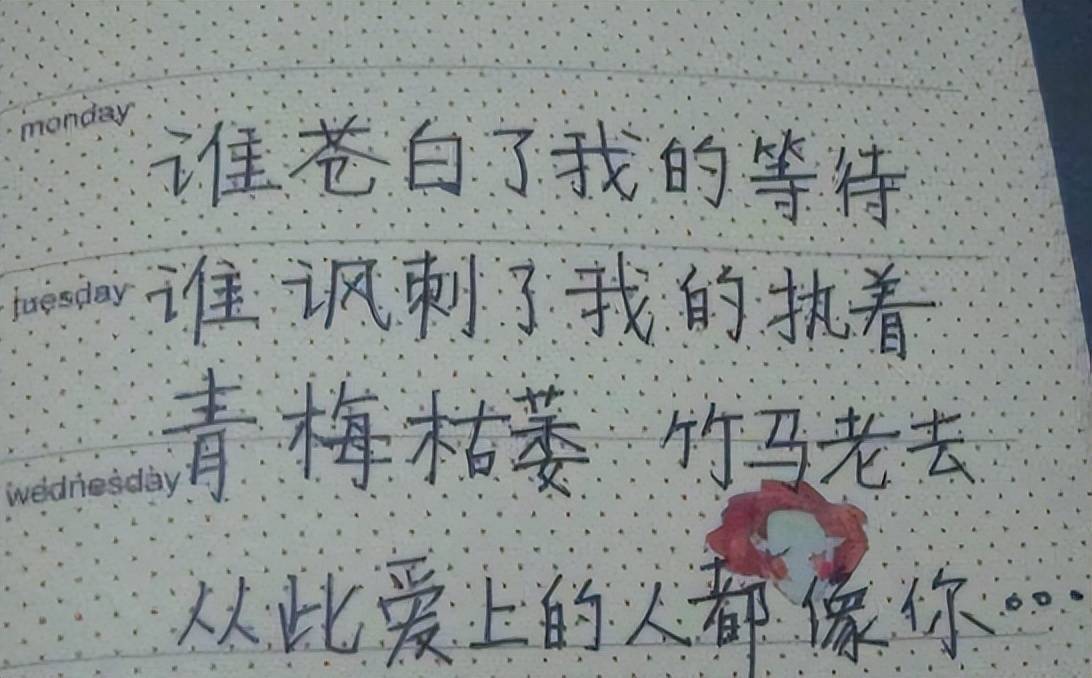 monday
谁苍白了我的等待
tuesday
谁讽刺了我的执着
青梅枯萎 竹马老去
wednesday
从此爱上的人都像你...